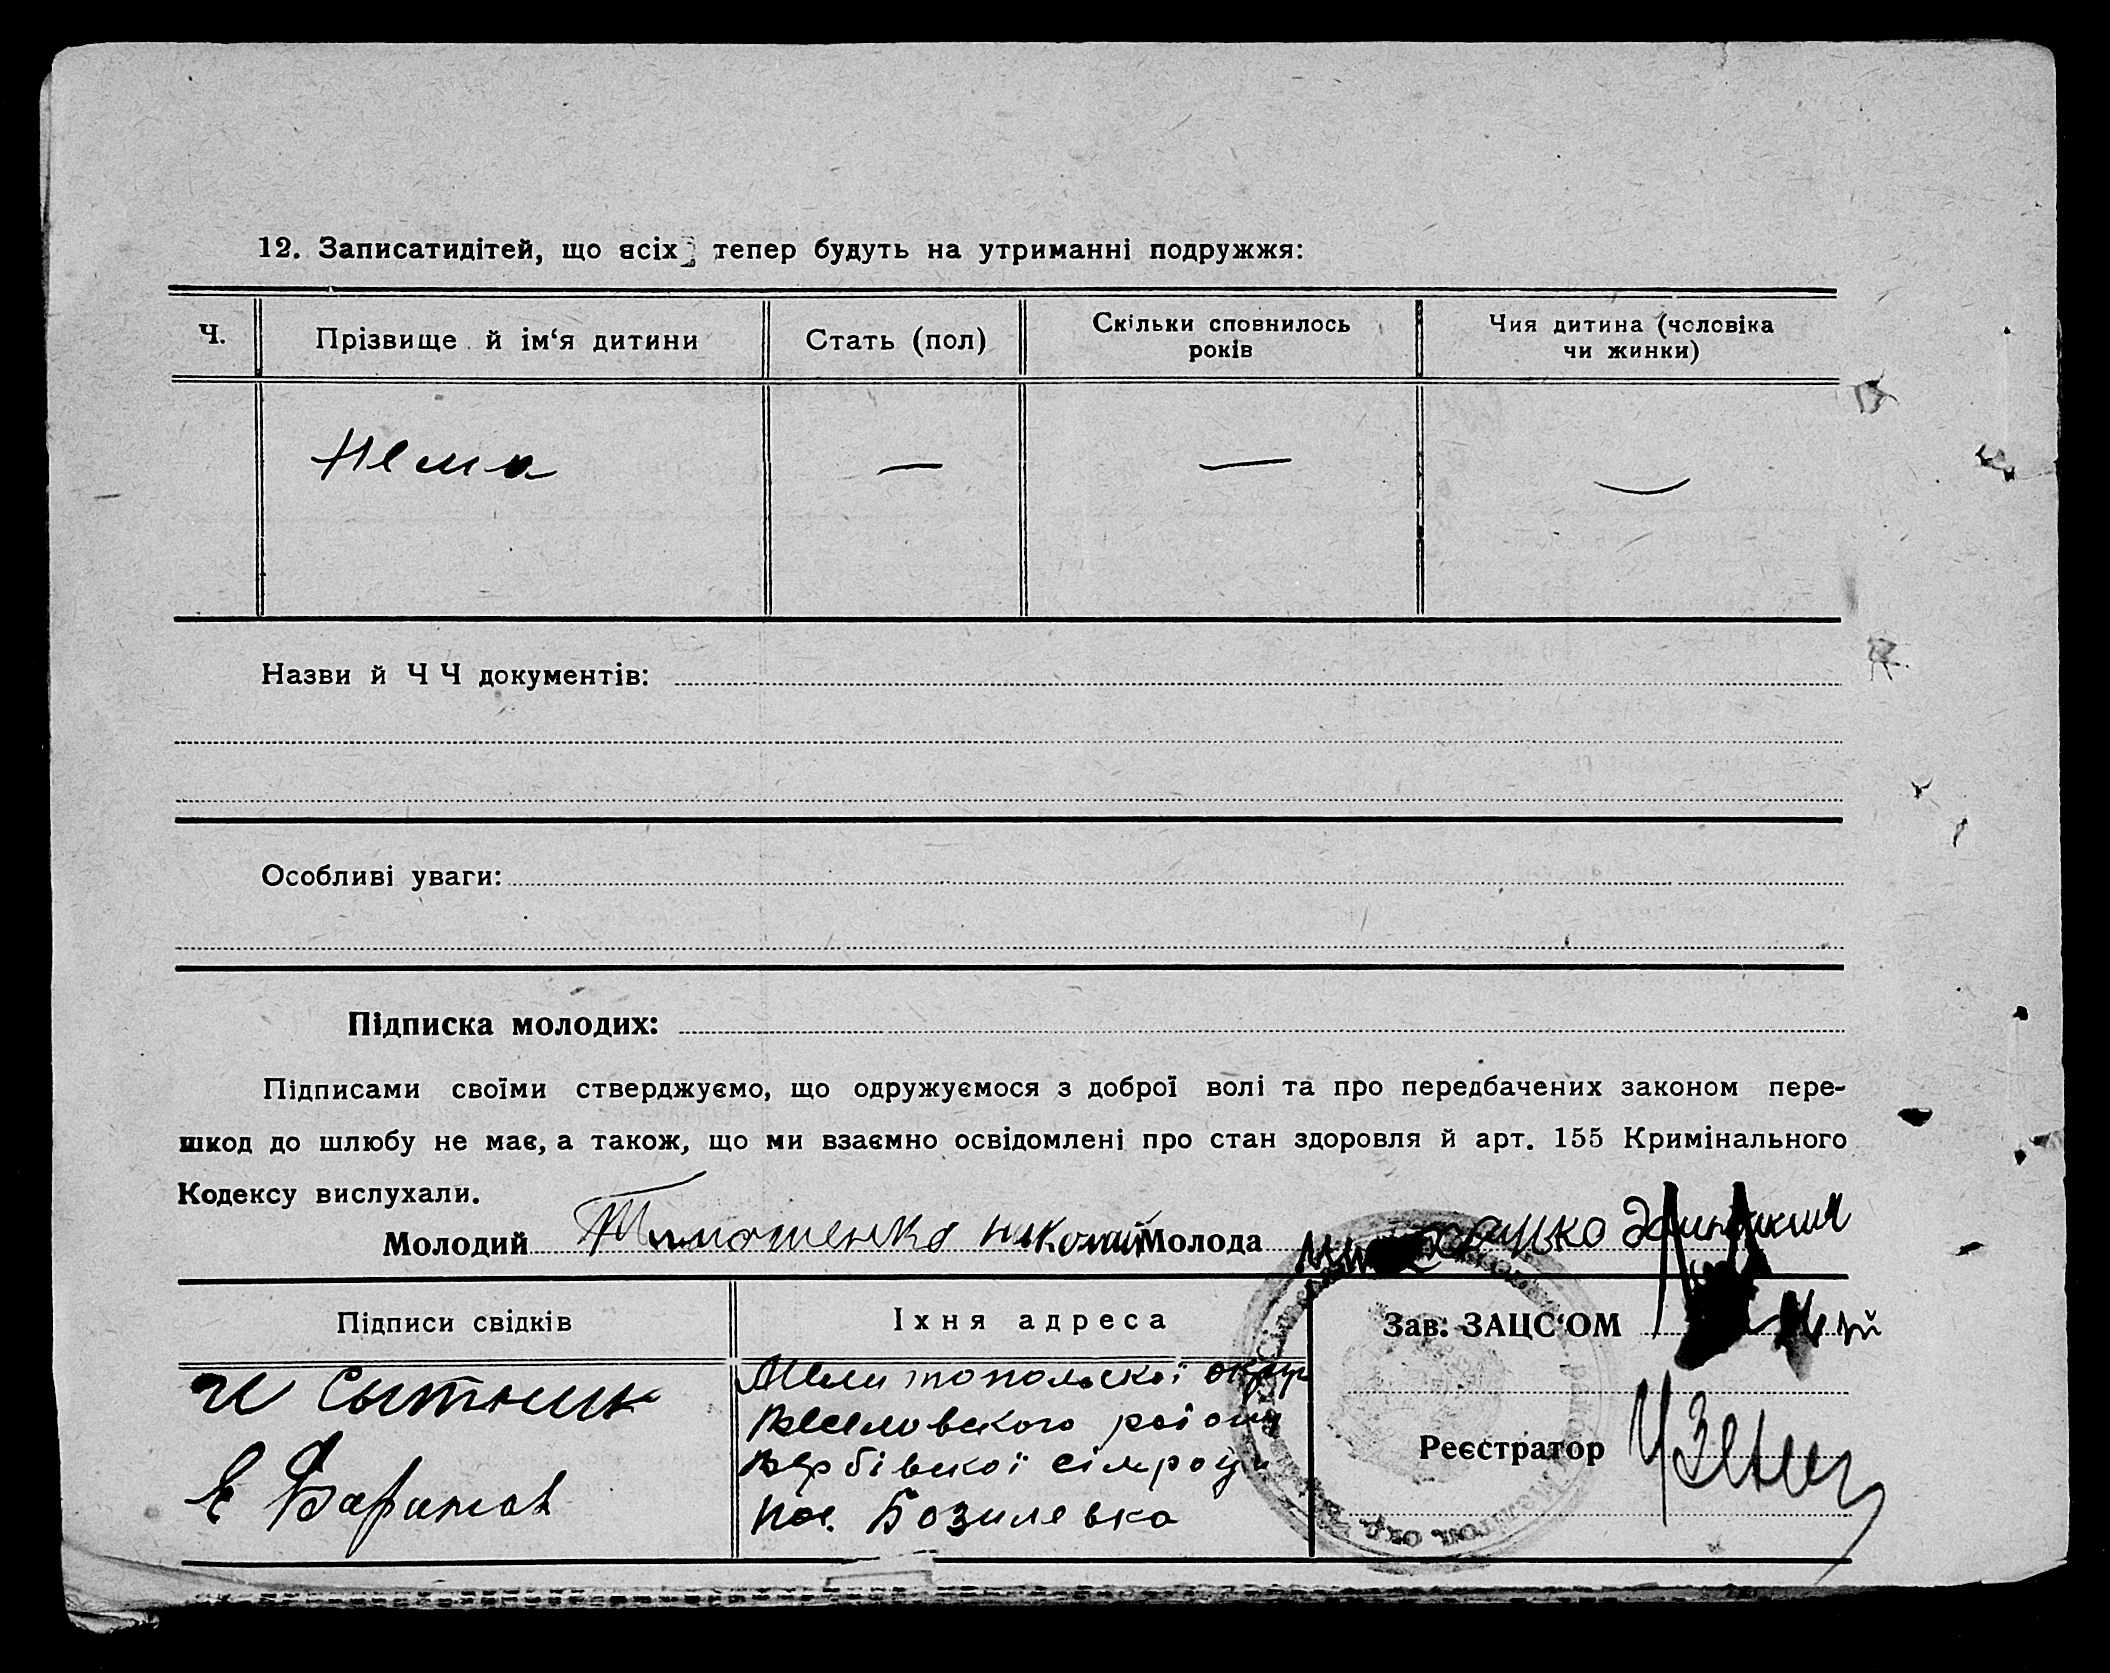 12. Записатидітей, що всіх тепер будуть на утриманні подружжя:
Ч.
Прізвище й ім‘я дитини
Стать (пол)
Скільки сповнилось років
Чия дитина (чоловіка чи жинки)
Нема — — —
Назви й Ч Ч документів:
Особливі уваги:
Підписка молодих:
Підписами своїми стверджуємо, що одружуємося з доброї волі та про передбачених законом пере-
шкод до шлюбу не має, а також, що ми взаємно освідомлені про стан здоровля й арт. 155 Кримінального
Кодексу вислухали.
Молодий Тимошенко Николай Молода
Підписи свідків
Їхня адреса
Зав. ЗАЦС‘ОМ
И Сытник
Е
Мелитопольскої округ
Веселовского району
Вербівскої сілради
пос. Базилевка
Реєстратор